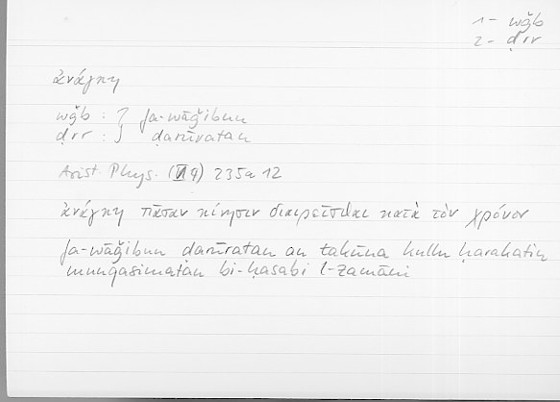 1 – wǧb
2 – ḍrr
ἀνάγκη
wǧb : } fa-wāǧibun
ḍrr : } ḍarūratan
Arist. Phys. (VI 4) 235a 12
ἀνάγκη πᾶσαν κίνησιν διαιρεῖσθαι κατὰ τὸν χρόνον
fa-wāǧibun ḍarūratan an takūna kullu ḥarakatin
munqasimatan bi-ḥasabi l-zamāni